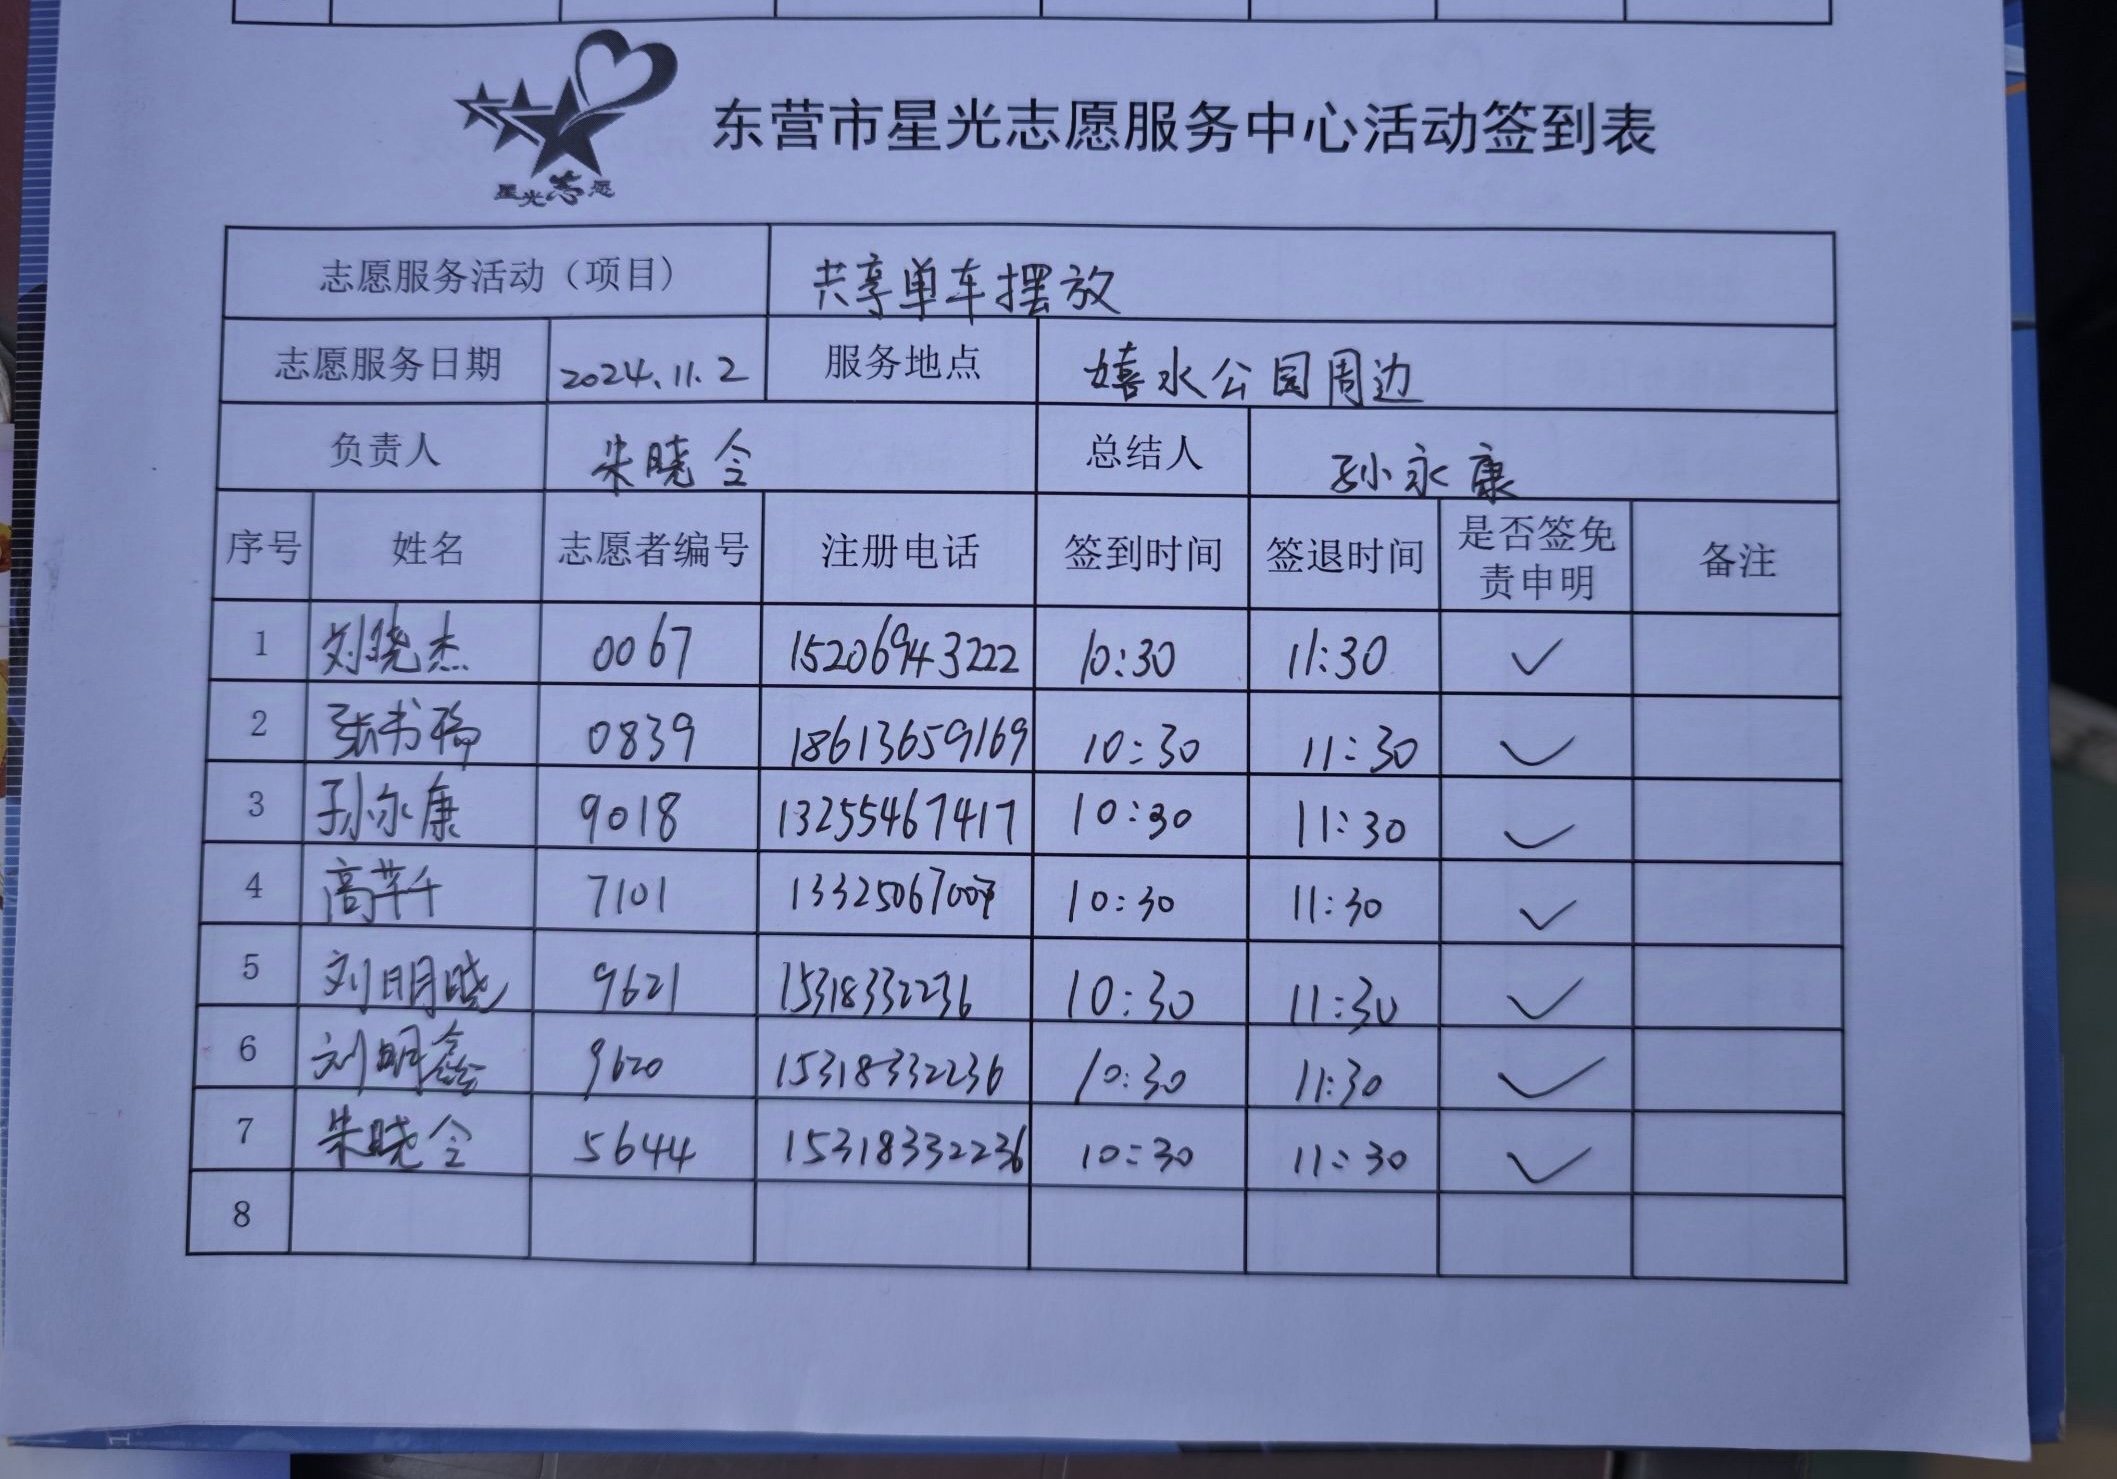 星光志愿
东营市星光志愿服务中心活动签到表
志愿服务活动（项目） 共享单车摆放
志愿服务日期 2024.11.2 服务地点 嬉水公园周边
负责人 朱晓令 总结人 孙永康
序号 姓名 志愿者编号 注册电话 签到时间 签退时间 是否签免责申明 备注
1 刘晓杰 0067 15206943222 10:30 11:30 ✓
2 张书 0839 18613659169 10:30 11:30 ✓
3 孙永康 9018 13255467417 10:30 11:30 ✓
4 高芊千 7101 10:30 11:30 ✓
5 刘明晓 9621 15318332236 10:30 11:30 ✓
6 刘明鑫 9620 15318332236 10:30 11:30 ✓
7 朱晓令 5644 15318332236 10:30 11:30 ✓
8